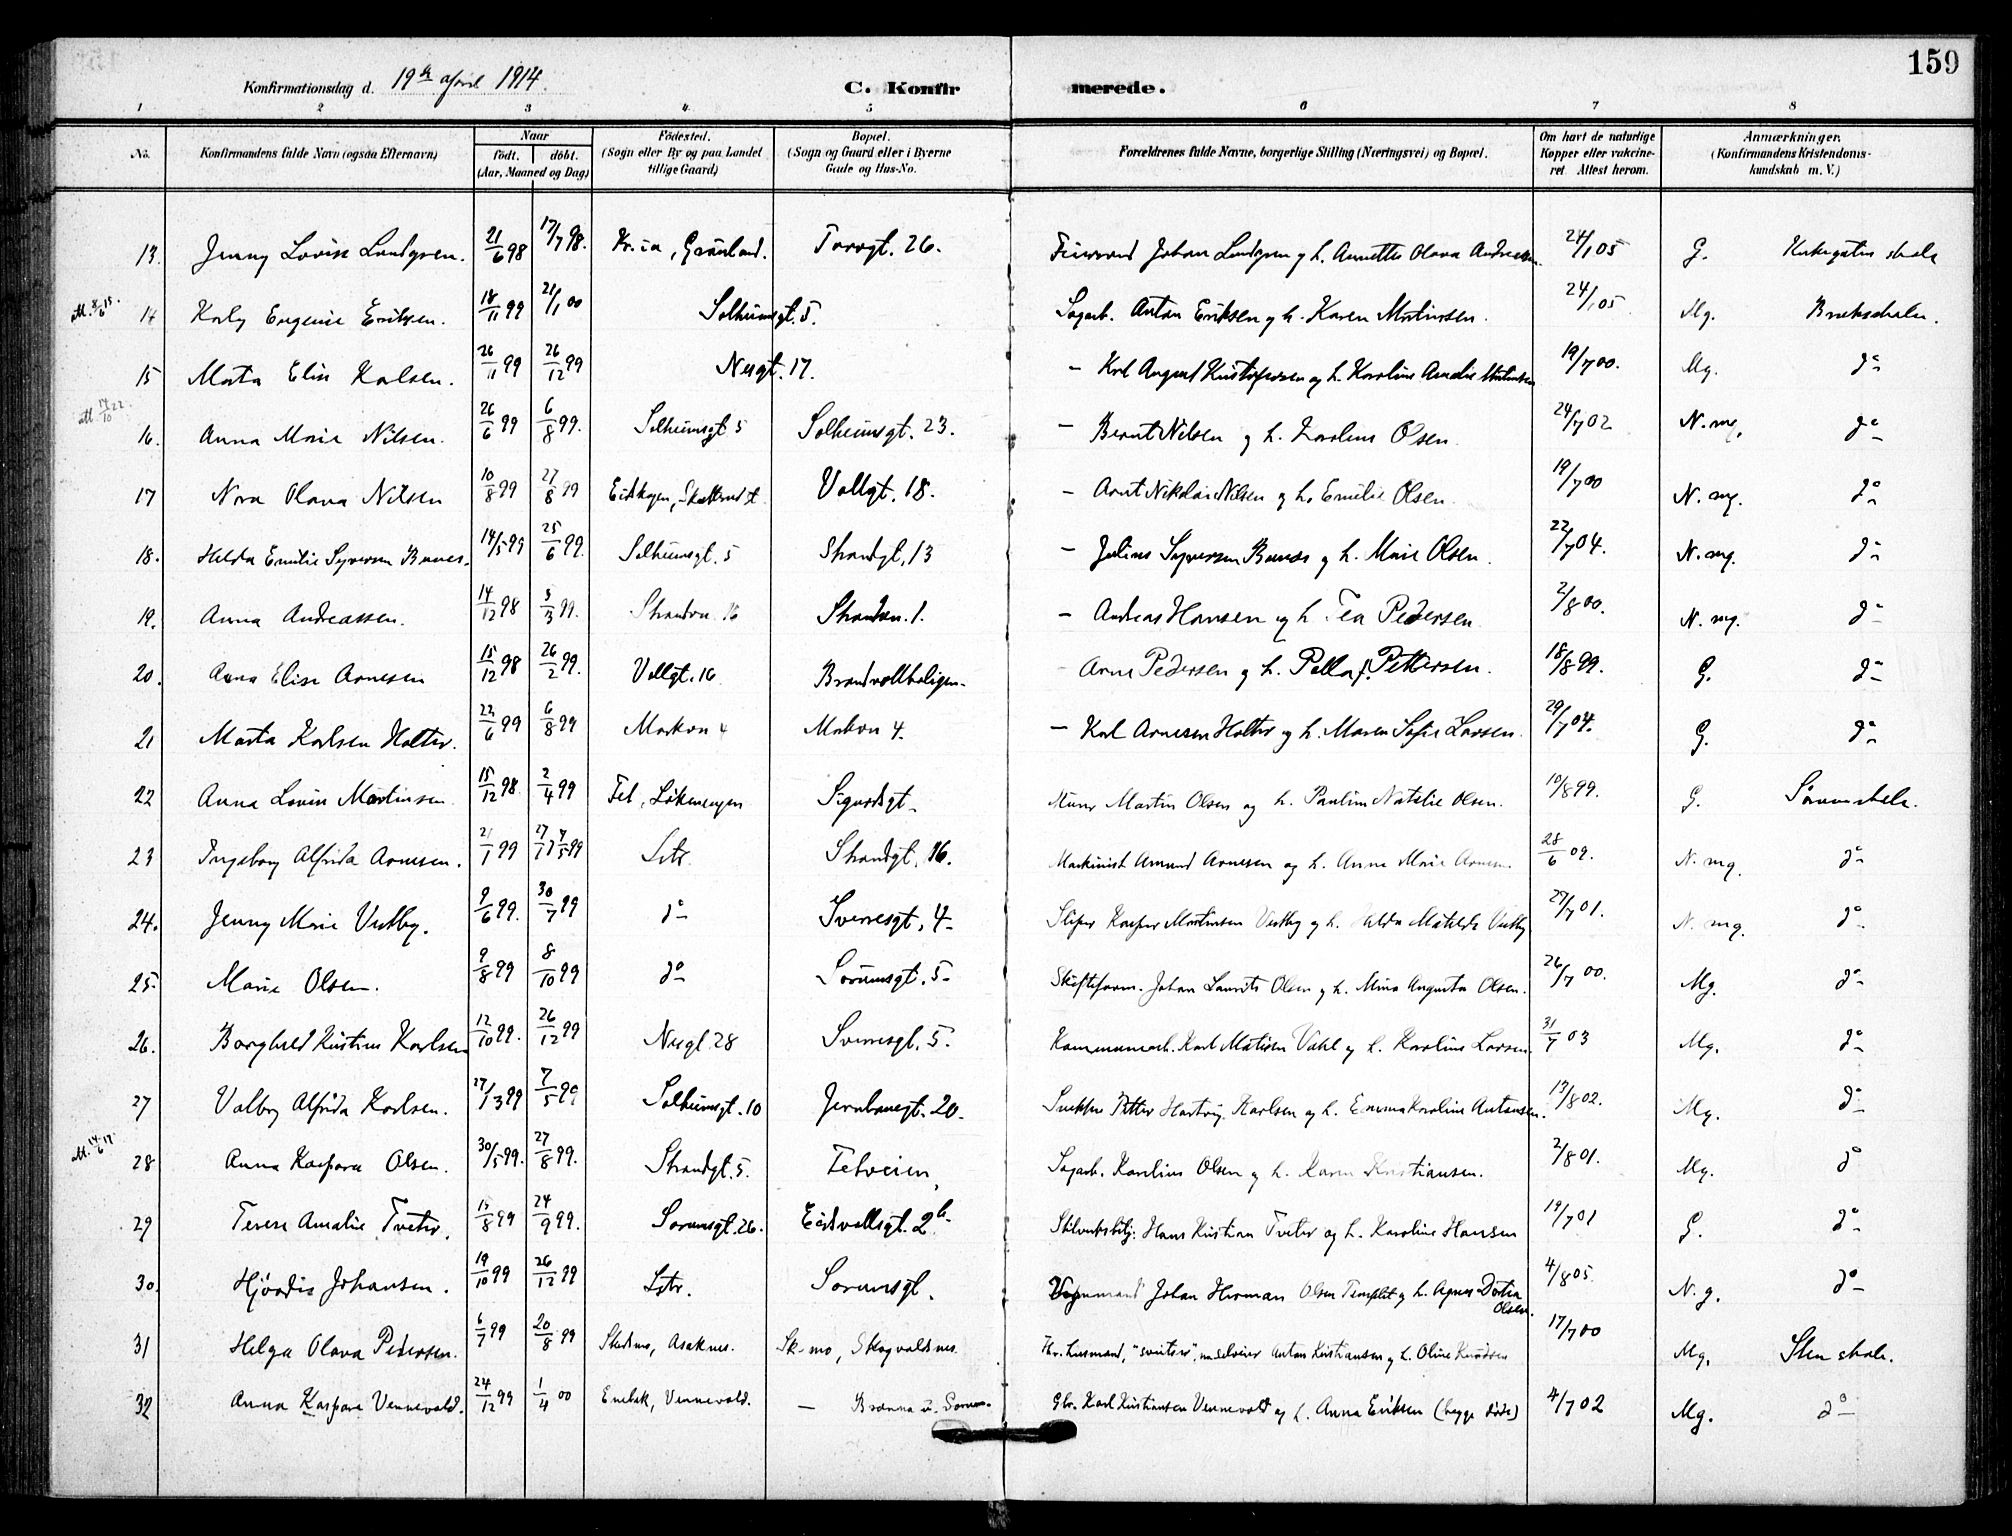 159
Konfirmationsdag d. 19de april 1914.
C. Konfirmerede.
1 2 3 4 5 6 7 8
No. Konfirmandens fulde Navn (ogsaa Efternavn) Naar födt. döbt. (Aar, Maaned og Dag) Födested. (Sogn eller By og paa Landet tillige Gaard) Bopæl. (Sogn og Gaard eller i Byerne Gade og Hus-No. Forældrenes fulde Navne, borgerlige Stilling (Næringsvei) og Bopæl. Om havt de naturlige Kopper eller vakcineret. Attest herom. Anmærkninger. (Konfirmandens Kristendomskundskab m. V.)
13. Jenny Lovise Lundgren. 21/6 98 17/7 98. Kr.ia, Grönland. Torvgt. 26. Johan Lundgren og h. Annette Olava Andreassen. 24/1 05 G. Kirkegatens skole
14 Karly Eugenie Eriksen. 18/11 99 21/1 00 Solheimsgt. 5. Sagarb. Anton Eriksen og h. Karen Martinsen. 24/1 05 Mg. Brakeskolen.
15 Marta Elise Karlsen. 26/11 99 26/12 99 Nesgt. 17. – Karl August Kristofersen og h. Karoline Amalie 19/7 00. Mg. do
16. Anna Marie Nilsen. 26/6 99 6/8 99. Solheimsgt 5 Solheimsgt. 23. – Bernt Nilsen og h. Karoline Olsen. 24/7 02 N. mg. do
17 Nora Olava Nilsen 10/8 99 27/8 99 Eidskogen, Vollgt. 18. – Arnt Nikolai Nilsen og h. Emilie Olsen. 19/7 00 N. mg. do
18. Hilda Emilie Syversen Bunes. 14/5 99 25/6 99. Solheimsgt. 5 Strandgt. 13 – Julius Syversen Bunes og h. Marie Olsen. 22/7 04. N. mg. do
19. Anna Andreassen. 14/12 98 5/3 99. Strandvn. 16 Strandvn. 1. – Andreas Hansen og h. Tea Pedersen 2/8 00. N. mg. do
20. Anna Elise Arnesen 15/12 98 26/2 99. Vollgt. 16 Brandvoldboligen. – Arne Pedersen og h. Pella f. Pettersen. 18/8 99. G. do
21 Marta Karlsen Holter. 22/6 99 6/8 99 Markvn 4 Markvn 4. – Karl Arnesen Holter og h. Maren Sofie Larsen. 29/7 04. G. do
22 Anna Lovise Martinsen. 15/12 98. 2/4 99 Fet, Sigurdsgt. Murer Martin Olsen og h. Pauline Natalie Olsen. 10/8 99. G.
23 Ingeborg Alfrida Arnesen. 21/1 99 Lstr. Strandgt. 16. Maskinist Amund Arnesen og h. Anne Marie Arnesen 28/6 09. N. mg. do
24. Jenny Marie Vestby. 9/6 99. 30/7 99 do Sverresgt. 4. Sliper Kasper Martinsen Vestby og h. Hilda Matilde Vestby 27/7 01. N. mg. do
25. Marie Olsen. 9/8 99 8/10 99 do Sörumsgt. 5. Skifteform. Johan Laurits Olsen og h. Mina Augusta Olsen. 26/7 00. Mg. do
26. Borghild Kristine Karlsen 12/10 99. 26/12 99 Nesgt 28 Sverresgt. 5. Karl Matisen Vahl og h. Karoline Larsen. 31/7 03 Mg. do
27 Valborg Alfrida Karlsen. 27/3 99 7/5 99 Solheimsgt. 10 Jernbanegt. 20. Snekker Petter Hartvig Karlsen og h. Emma Karoline Antonsen. 13/8 02. Mg. do
28 Anna Kaspara Olsen. 30/5 99. 27/8 99. Strandgt. 5. Fetveien, Sagarb. Karelius Olsen og h. Karen Kristiansen. 2/8 01. Mg. do
29 Terese Amalie Tveter. 15/8 99 24/9 99. Sörumsgt. 26. Eidsvollsgt. 2b. Hans Kristian Tveter og h. Karoline Hansen 19/7 01 G. do
30. Hjördis Johansen. 19/10 99 26/12 99 Lstr. Sörumsgt. Johan Herman Olsen og h. Agnes Dortea Olsen. 4/8 05. N. g. do
31 Helga Olava Pedersen. 6/7 99 20/8 99 Skedsmo, Asaknes. Sk-mo, Skogvoldsnes. "sveitser", Anton Kristiansen og h. Oline Knudsen 17/7 00 Mg. Sten skole.
32 Anna Kaspara Vennevold. 24/12 99 1/4 00 Enebak, Vennevold. – Branna u. Gbr. Karl Kristiansen Vennevold og h. Anna Eriksen (begge döde) 4/7 02 Mg. do